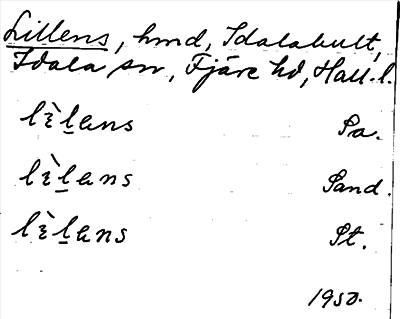 Lillens, hmd, Idalahult,
Idala sn, Fjäre hd, Hall. l.
lìlans Pa.
lìlans Sand.
lìlans St.
1950.